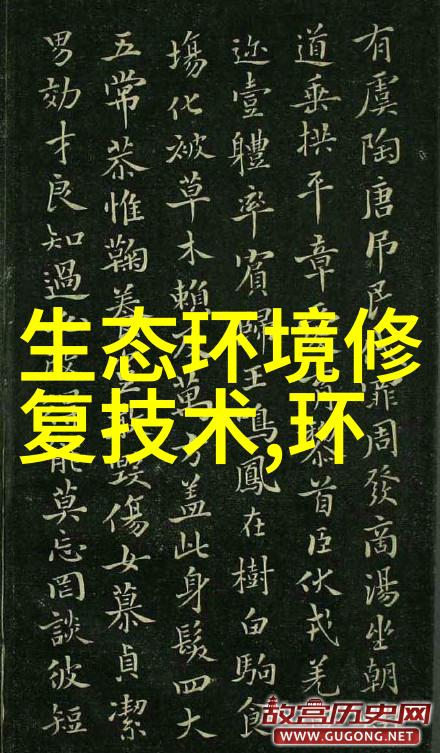 有虞陶唐吊民罪周發商湯坐朝
道垂拱平章育首臣伏戎羌
迩壹體率賓歸王鳴鳳在樹白駒食
塲化被草木賴萬方蓋此身髮四大
五常恭惟鞠養毀傷女慕貞潔
男効才良知過能莫忘罔談彼短
生态环境修
复技术,环
故宫历史网
WWW.GUGONG.NET